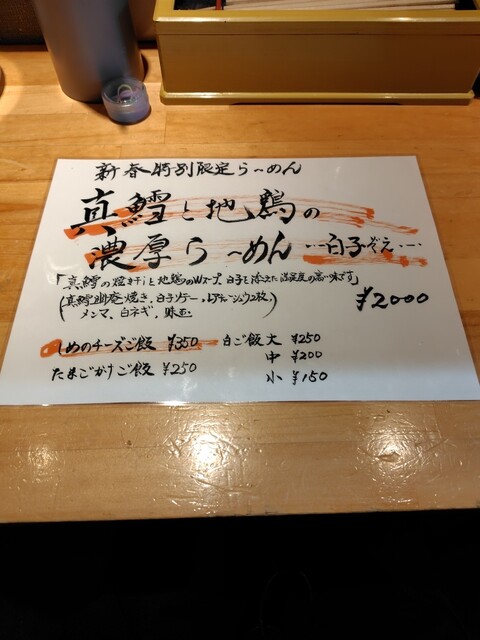 新春特別限定らーめん
真鱈と地鶏の
濃厚らーめん …白子ぞえ…
「真鱈の煮干しと地鶏のWスープ。白子を添えた満足度の高い味です」
(真鱈幽庵焼き、白子ソテー、レアチャーシュウ2枚、
メンマ、白ネギ、味玉) ¥2000
しめのチーズご飯 ¥350 白ご飯 大 ¥250
中 ¥200
たまごかけご飯 ¥250 小 ¥150